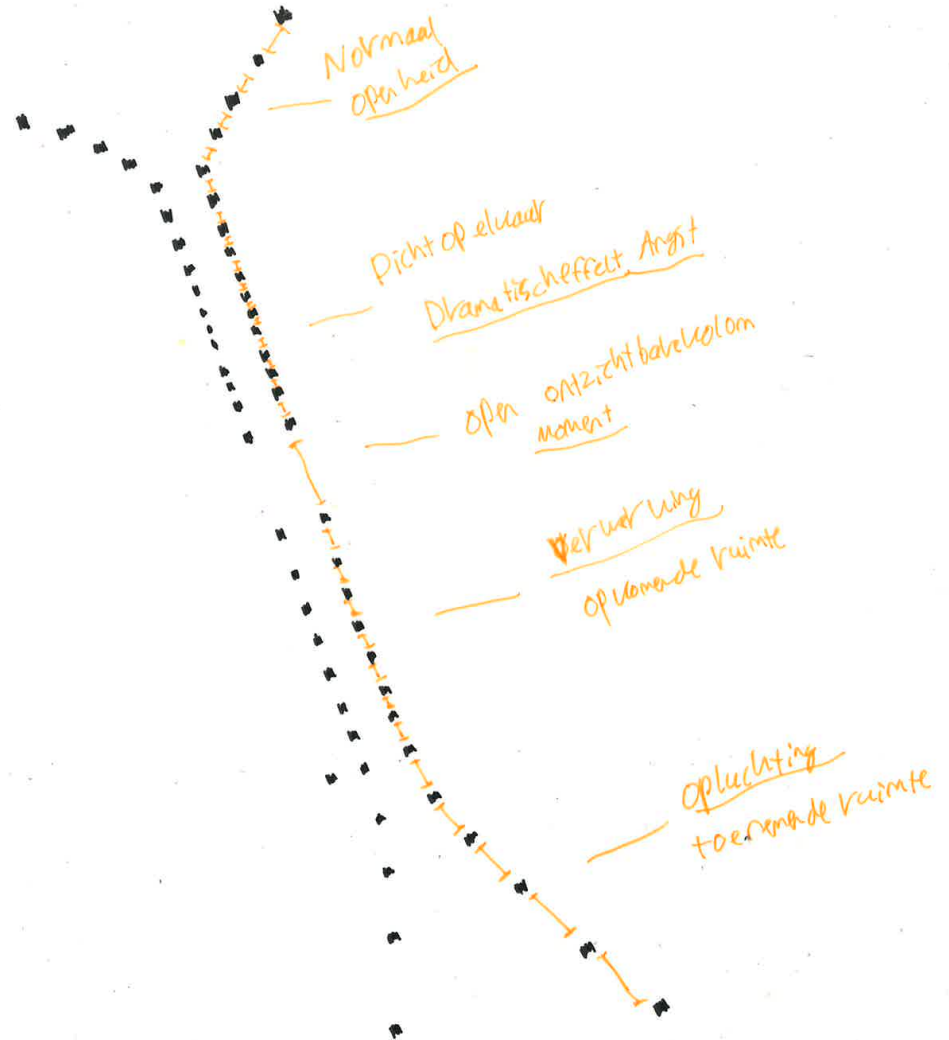 Normaal
openheid
Dicht op elkaar
Dramatisch effect Angst
open ontzichtbare kolom
moment
Verwerking
opkomende ruimte
opluchting
toenemende ruimte